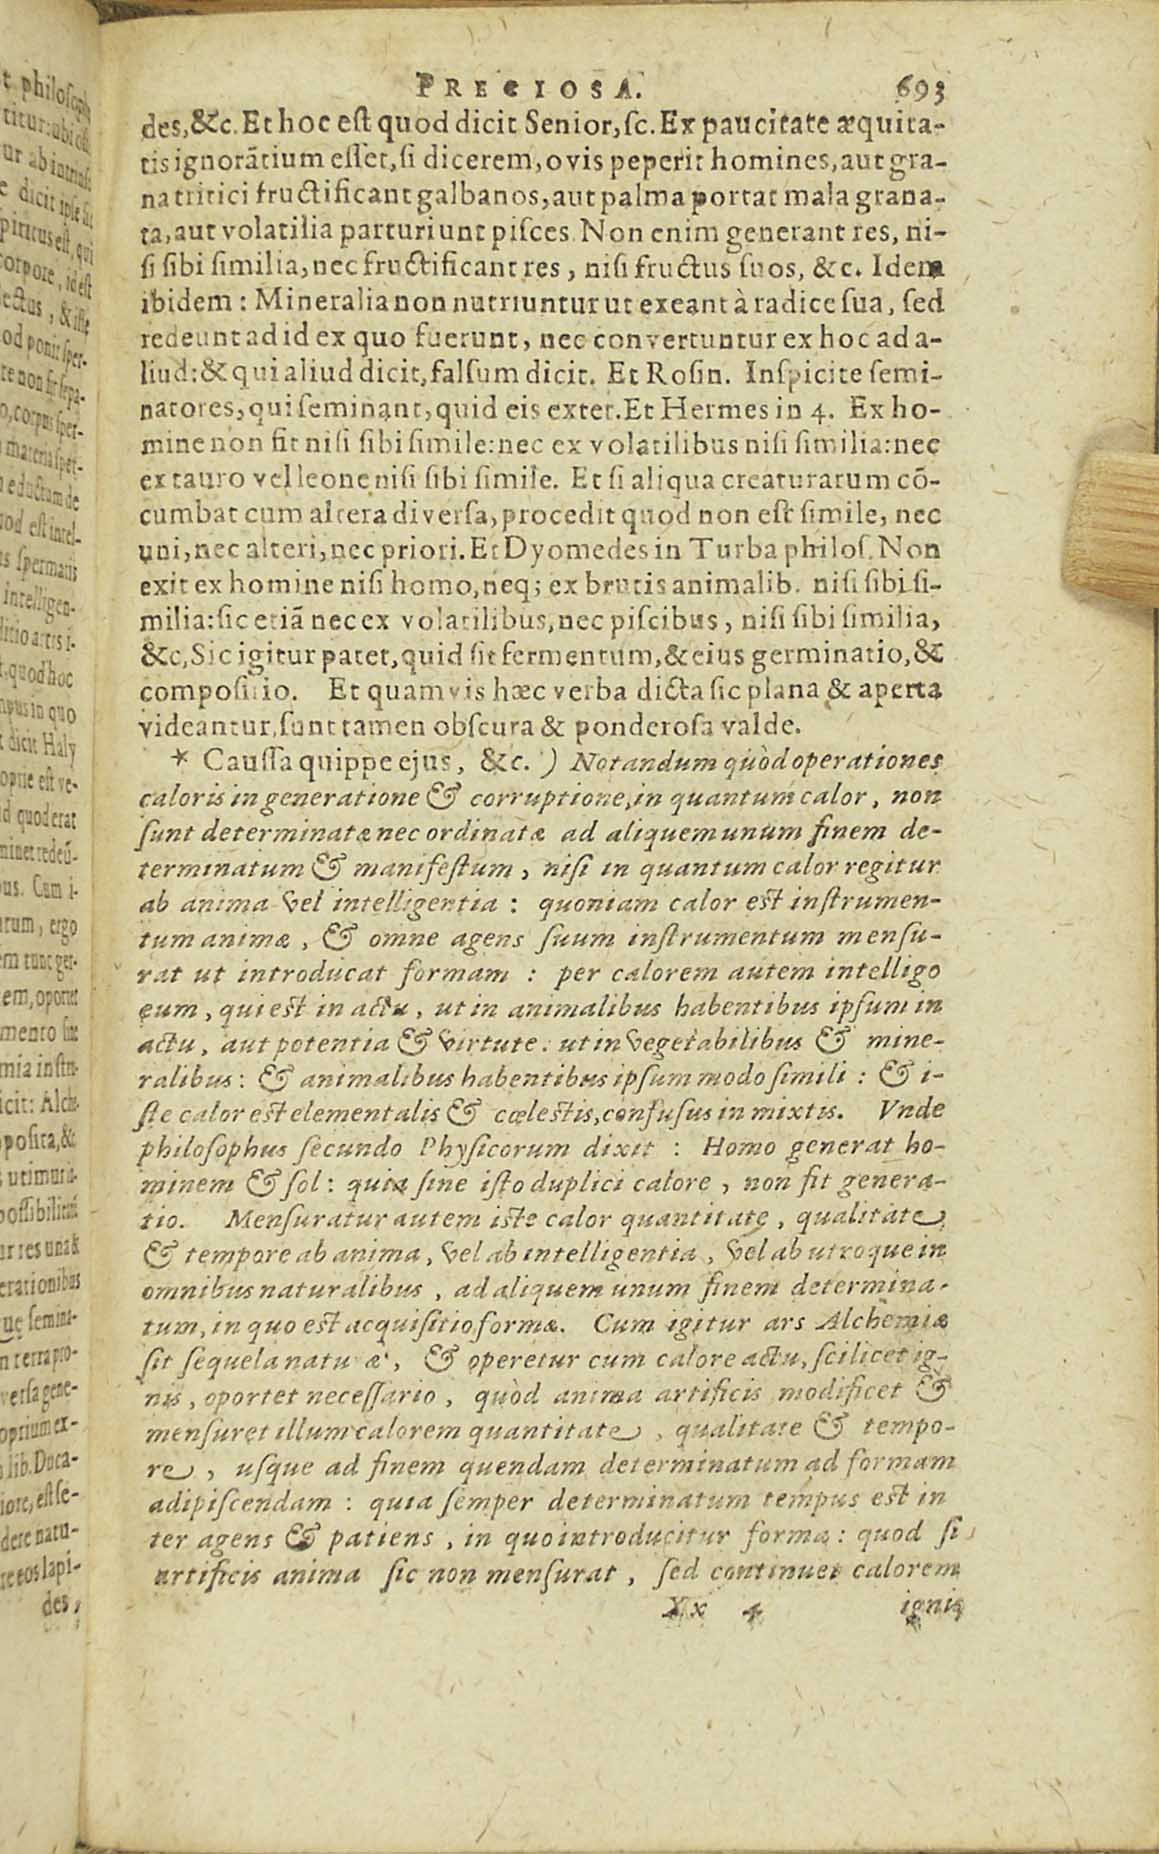 t philosoph
titur: ubi
ur ab intrinse
e dicit ipse
piritus est, qui
corpore, id est
ectus, & iste
od ponit sper-
te non sit sepa-
o, corpus sper-
materia sper-
eductum de
uod est intel-
is spermatis
intelligen-
ditio artis i-
t, quod hoc
mpus in quo
t dicit Haly
oprie est ve-
d quod erat
minet redeū-
ous. Cum i-
rum, ergo
em tunc ger-
em, oportet
mento sine
mia instru-
icit: Alche-
posita, &c.
utimur a-
possibilitatē
ur res una &
erationibus
que semina-
n terra pro-
versa gene-
oprium ex-
lib. Duca-
iore, est se-
dere natu-
re eos lapi-
des,
PRECIOSA. 693
des, &c. Et hoc est quod dicit Senior, sc. Ex paucitate æquita-
tis ignorātium esset, si dicerem, ovis peperit homines, aut gra-
na tritici fructificant galbanos, aut palma portat mala grana-
ta, aut volatilia parturiunt pisces. Non enim generant res, ni-
si sibi similia, nec fructificant res, nisi fructus suos, &c. Idem
ibidem: Mineralia non nutriuntur ut exeant à radice sua, sed
redeunt ad id ex quo fuerunt, nec convertuntur ex hoc ad a-
liud: & qui aliud dicit, falsum dicit. Et Rosin. Inspicite semi-
natores, qui seminant, quid eis extet. Et Hermes in 4. Ex ho-
mine non fit nisi sibi simile: nec ex volatilibus nisi similia: nec
ex tauro vel leone nisi sibi simile. Et si aliqua creaturarum cō-
cumbat cum altera diversa, procedit quod non est simile, nec
uni, nec alteri, nec priori. Et Dyomedes in Turba philos. Non
exit ex homine nisi homo, neq; ex brutis animalib. nisi sibi si-
milia: sic etiā nec ex volatilibus, nec piscibus, nisi sibi similia,
&c. Sic igitur patet, quid sit fermentum, & eius germinatio, &
compositio. Et quamvis hæc verba dicta sic plana & aperta
videantur, sunt tamen obscura & ponderosa valde.
* Caussa quippe ejus, &c. ) Notandum quòd operationes
caloris in generatione & corruptione, in quantum calor, non
sunt determinatæ nec ordinatæ ad aliquem unum finem de-
terminatum & manifestum, nisi in quantum calor regitur
ab anima vel intelligentia: quoniam calor est instrumen-
tum animæ, & omne agens suum instrumentum mensu-
rat ut introducat formam: per calorem autem intelligo
eum, qui est in actu, ut in animalibus habentibus ipsum in
actu, aut potentia & virtute. ut in vegetabilibus & mine-
ralibus: & animalibus habentibus ipsum modo simili: & i-
ste calor est elementalis & cœlestis, confusus in mixtis. Vnde
philosophus secundo Physicorum dixit: Homo generat ho-
minem & sol: quia sine isto duplici calore, non fit genera-
tio. Mensuratur autem iste calor quantitate, qualitate,
& tempore ab anima, vel ab intelligentia, vel ab utroque in
omnibus naturalibus, ad aliquem unum finem determina-
tum, in quo est acquisitio formæ. Cum igitur ars Alchemiæ
sit sequela natu æ, & operetur cum calore actu, scilicet ig-
nis, oportet necessario, quòd anima artificis modificet &
mensuret illum calorem quantitate, qualitate & tempo-
re, usque ad finem quendam determinatum ad formam
adipiscendam: quia semper determinatum tempus est in
ter agens & patiens, in quo introducitur forma: quod si
artificis anima sic non mensurat, sed continuet calorem
Xx 4 ignis